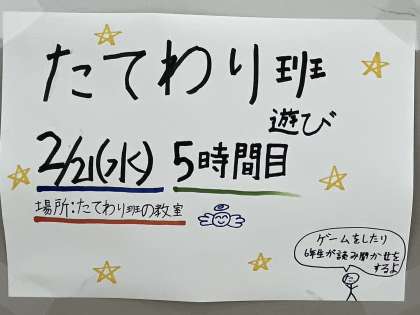 たてわり班
遊び
2/21(水) 5時間目
場所:たてわり班の教室
ゲームをしたり
6年生が読み聞かせを
するよ